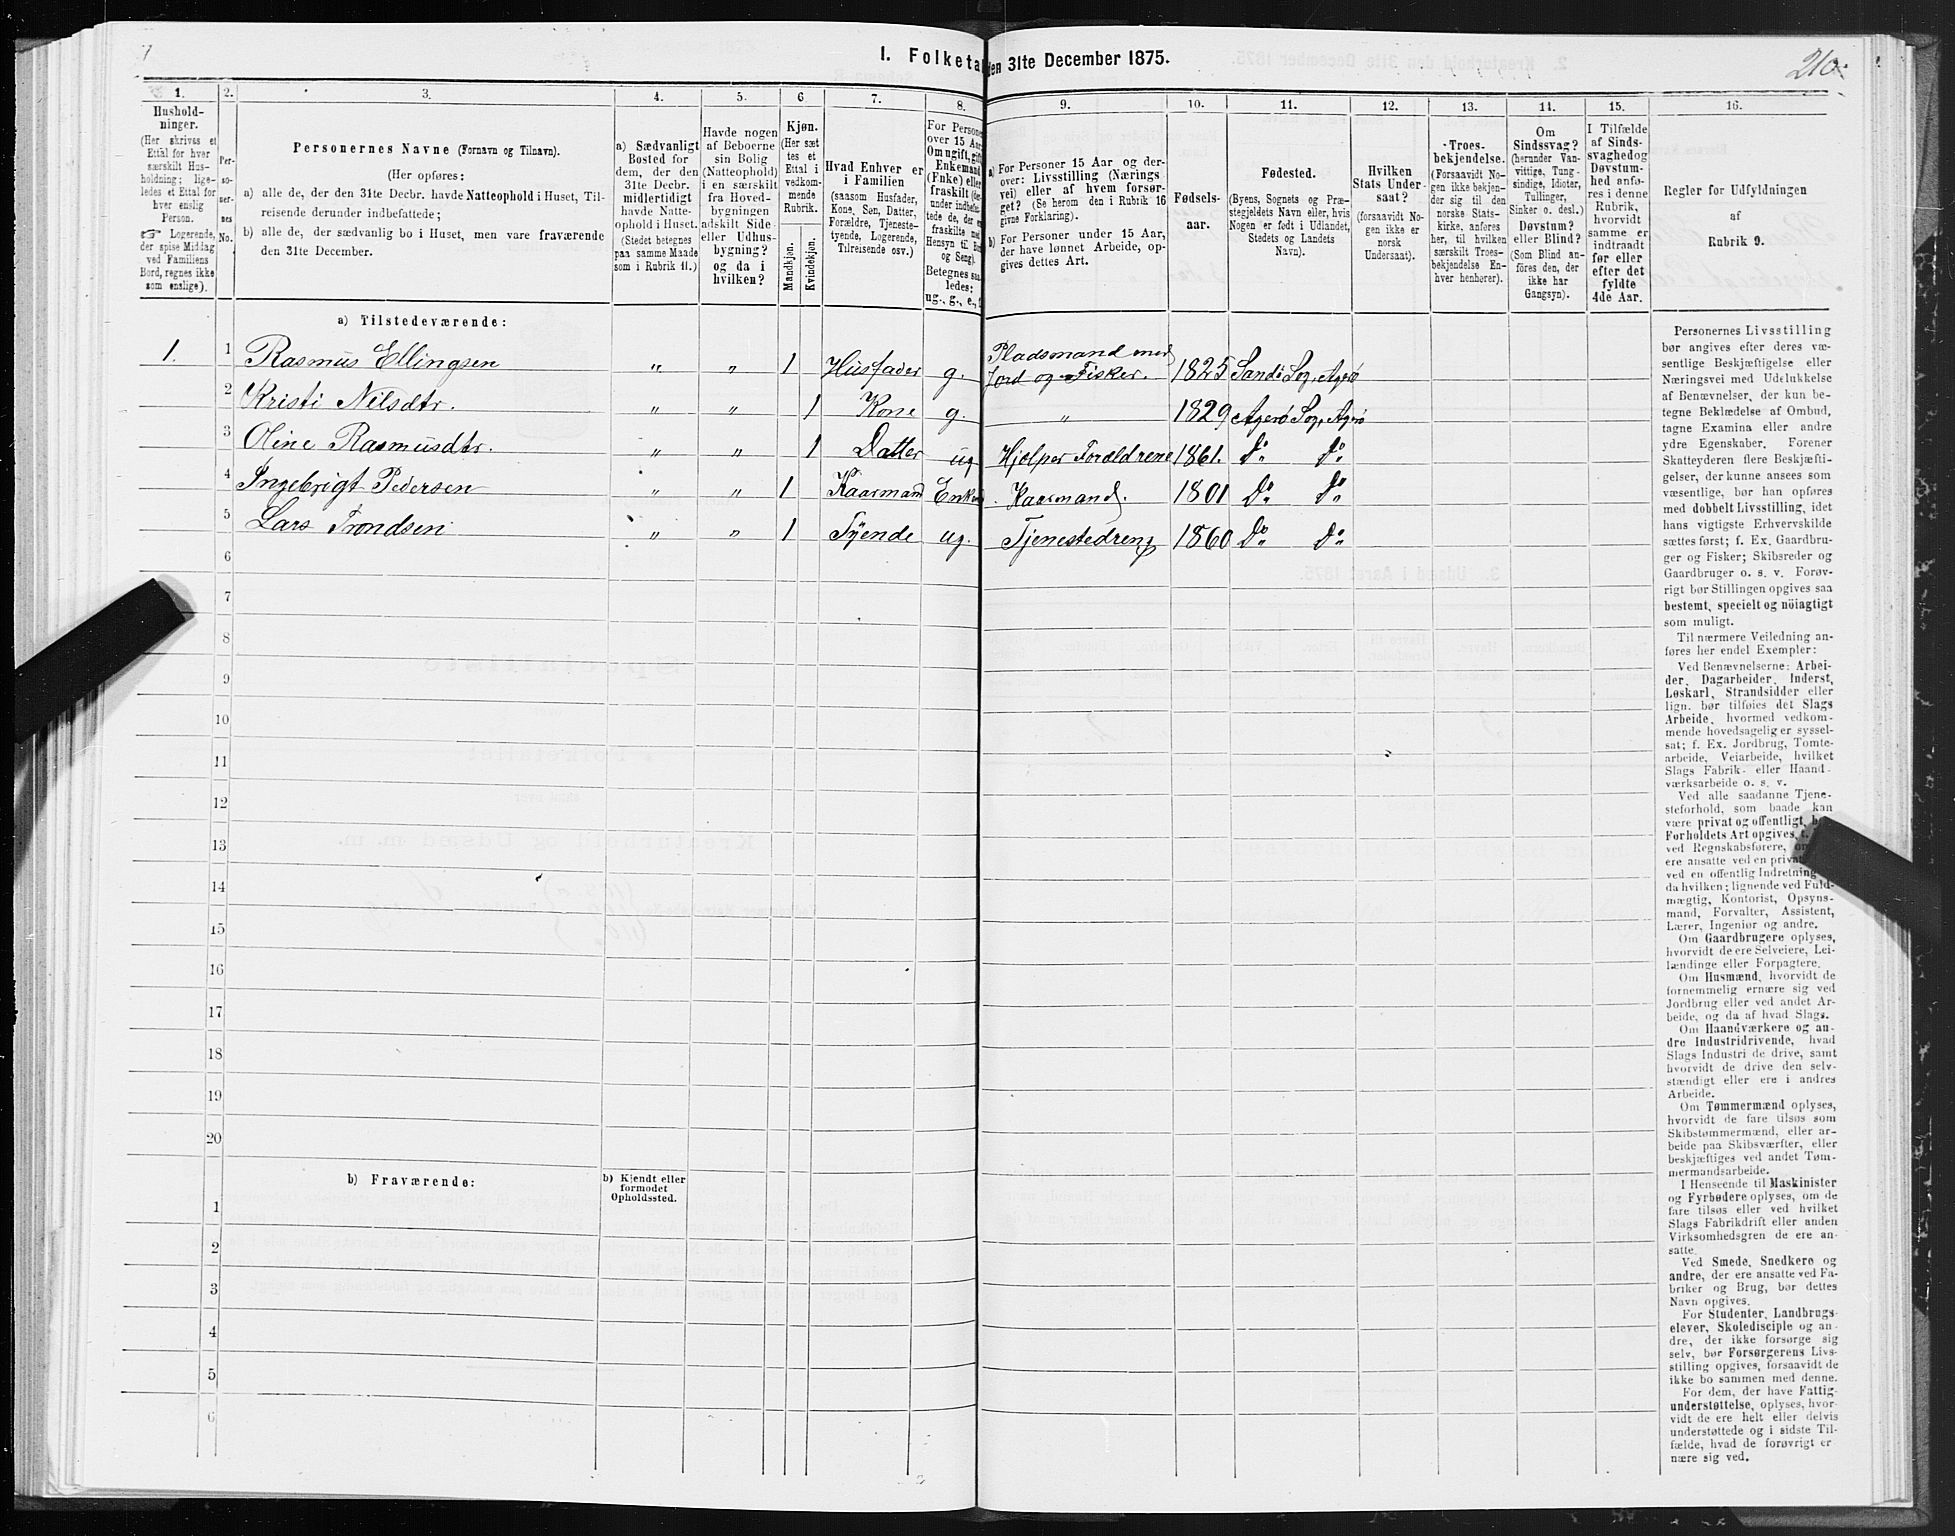 I. Folketal den 31te December 1875.
210.
1.
2.
3.
4.
5.
6
7.
8.
9.
10.
11.
12.
13.
14.
15.
16.
Hushold-
ninger.
(Her skrives et
Ettal for hver
særskilt Hus-
holdning; lige-
ledes et Ettal for
hver enslig
Person.
☞ Logerende,
der spise Middag
ved Familiens
Bord, regnes ikke
som enslige).
Per-
so-
ner-
nes
No.
Personernes Navne (Fornavn og Tilnavn).
(Her opføres:
a) alle de, der den 31te Decbr. havde Natteophold i Huset, Til-
reisende derunder indbefattede;
b) alle de, der sædvanlig bo i Huset, men vare fraværende
den 31te December.
a) Sædvanligt
Bosted for
dem, der den
31te Decbr.
midlertidigt
havde Natte-
ophold i Huset.
(Stedet betegnes
paa samme Maade
som i Rubrik 11.)
Havde nogen
af Beboerne
sin Bolig
(Natteophold)
i en særskilt
fra Hoved-
bygningen
adskilt Side-
eller Udhus-
bygning?
og da i
hvilken?
Kjøn.
(Her sæt
tes et
Ettal i
vedkom-
mende
Rubrik.
Mandkjøn.
Kvindekjøn.
Hvad Enhver er
i Familien
(saasom Husfader,
Kone, Søn, Datter,
Forældre, Tjeneste-
tyende, Logerende,
Tilreisende osv.)
For Persone
over 15 Aar
Om ugift, gift
Enkemand
(Enke) eller
fraskilt (der-
under indbefat-
tede de, der ere
fraskilte med
Hensyn til Bord
og Seng).
Betegnes saa-
ledes:
ug., g., e.,
a) For Personer 15 Aar og der-
over: Livsstilling (Nærings
vei) eller af hvem forsør-
get? (Se herom den i Rubrik 16
givne Forklaring).
b) For Personer under 15 Aar,
der have lønnet Arbeide, op-
gives dettes Art.
Fødsels-
aar.
Fødested.
(Byens, Sognets og Præ-
stegjeldets Navn eller, hvis
Nogen er født i Udlandet,
Stedets og Landets
Navn).
Hvilken
Stats Under-
saat?
(forsaavidt No-
gen ikke er
norsk
Undersaat).
Troes-
bekjendelse.
(Forsaavidt No-
gen ikke bekjen-
der sig til den
norske Stats-
kirke, anføres
her, til hvilken
særskilt Troes-
bekjendelse En-
hver henhører).
Om
Sindssvag?
(herunder Van-
vittige, Tung-
sindige, Idioter,
Tullinger,
Sinker o. desl.)
Døvstum?
eller Blind?
(Som Blind an-
føres den, der
ikke har
Gangsyn).
I Tilfælde
af Sinds-
svaghed og
Døvstum-
hed anfø-
res i denne
Rubrik,
hvorvidt
samme er
indtraadt
før eller
efter det
fyldte
4de Aar.
Regler for Udfyldningen
af
Rubrik 9.
a) Tilstedeværende:
1. 1 Rasmus Ellingsen " " 1 Husfader g. Pladsmand med
Jord og Fisker. 1825 Sandö Sog, Agerö
2 Kristi Nilsdtr. " " 1 Kone g. " 1829 Agerö Sog, Agerö
3 Oline Rasmusdtr. " " 1 Datter ug Hjelper Foreldrene 1861. Do Do
4 Ingebrigt Pedersen " " 1 Kaarmand Enkem. Kaarmand. 1801 Do Do
5 Lars Trondsen " " 1 Tyende ug. Tjenestedreng 1860 Do Do
6
7
8
9
10
11
12
13
14
15
16
17
18
19
20
b) Fraværende:
b) Kjendt eller
formodet
Opholdssted.
1
2
3
4
5
6
Personernes Livsstilling
bør angives efter deres væ-
sentlige Beskjæftigelse eller
Næringsvei med Udelukkelse
af Benævnelser, der kun be-
tegne Beklædelse af Ombud,
tagne Examina eller andre
ydre Egenskaber. Forener
Skatteyderen flere Beskjæfti-
gelser, der kunne ansees som
væsentlige, bør han opføres
med dobbelt Livsstilling, idet
hans vigtigste Erhvervskilde
sættes først; f. Ex. Gaardbru-
ger og Fisker; Skibsreder og
Gaardbruger o. s. v. Forøv-
rigt bør Stillingen opgives saa
bestemt, specielt og nöiagtigt
som muligt.
Til nærmere Veiledning an-
føres her endel Exempler:
Ved Benævnelserne: Arbei-
der, Dagarbeider, Inderst,
Løskarl, Strandsidder eller
lign. bør tilføies det Slags
Arbeide, hvormed vedkom-
mende hovedsagelig er syssel-
sat; f. Ex. Jordbrug, Tomte-
arbeide, Veiarbeide, hvilket
Slags Fabrik- eller Haand-
værksarbeide o. s. v.
Ved alle saadanne Tjene-
steforhold, som baade kan
være privat og offentligt, b
Forholdets Art opgives, t.
ved Regnskabsførere, o
ere ansatte ved en privat
ved en offentlig Indretning
da hvilken; lignende ved Fuld-
mægtig, Kontorist, Opsyns-
mand, Forvalter, Assistent,
Lærer, Ingeniør og andre.
Om Gaardbrugere oplyses,
hvorvidt de ere Selveiere, Lei-
lændinge eller Forpagtere.
Om Husmænd, hvorvidt de
fornemmelig ernære sig ved
Jordbrug eller ved andet Ar-
beide, og da af hvad Slags.
Om Haandværkere og an-
dre Industridrivende, hvad
Slags Industri de drive, samt
hvorvidt de drive den selv-
stændigt eller ere i andres
Arbeide.
Om Tømmermænd oplyses,
hvorvidt de fare tilsøs som
Skibstømmermænd, eller ar-
beide paa Skibsværfter, eller
beskjæftiges ved andet Tøm-
mermandsarbeide.
I Henseende til Maskinister
og Fyrbødere oplyses, om de
fare tilsøs eller ved hvilket
Slags Fabrikdrift eller anden
Virksomhedsgren de ere an-
satte.
Ved Smede, Snedkere og
andre, der ere ansatte ved Fa-
briker og Brug, bør dettes
Navn opgives.
For Studenter, Landbrugs-
elever, Skoledisciple og an-
dre, der ikke forsørge sig
selv, bør Forsørgerens Livs-
stilling opgives, forsaavidt de
ikke bo sammen med denne.
For dem, der have Fattig-
understøttelse, oplyses, hvor-
vidt de ere helt eller delvis
understøttede og i sidste Til-
fælde, hvad de forøvrigt er
nære sig ved.